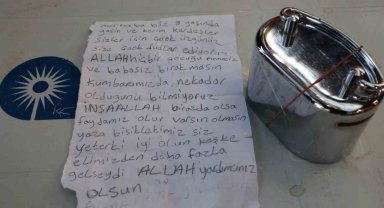 merhaba biz 9 yaşında
yasin ve kerim kardeşler
sizler için çook üzgünüz
size çook dualar ediyoruz
ALLAH hiçbir çocuğu annesiz
ve babasız bırakmasın
kumbaramızda nekadar
olduğunu bilmiyoruz
İNŞAALLAH birazda olsa
faydamız olur varsın olmasın
yaza bisikletimiz siz
yeterki iyi olun keşke
elimizden daha fazla
gelseydi ALLAH yardımcınız
OLSUN